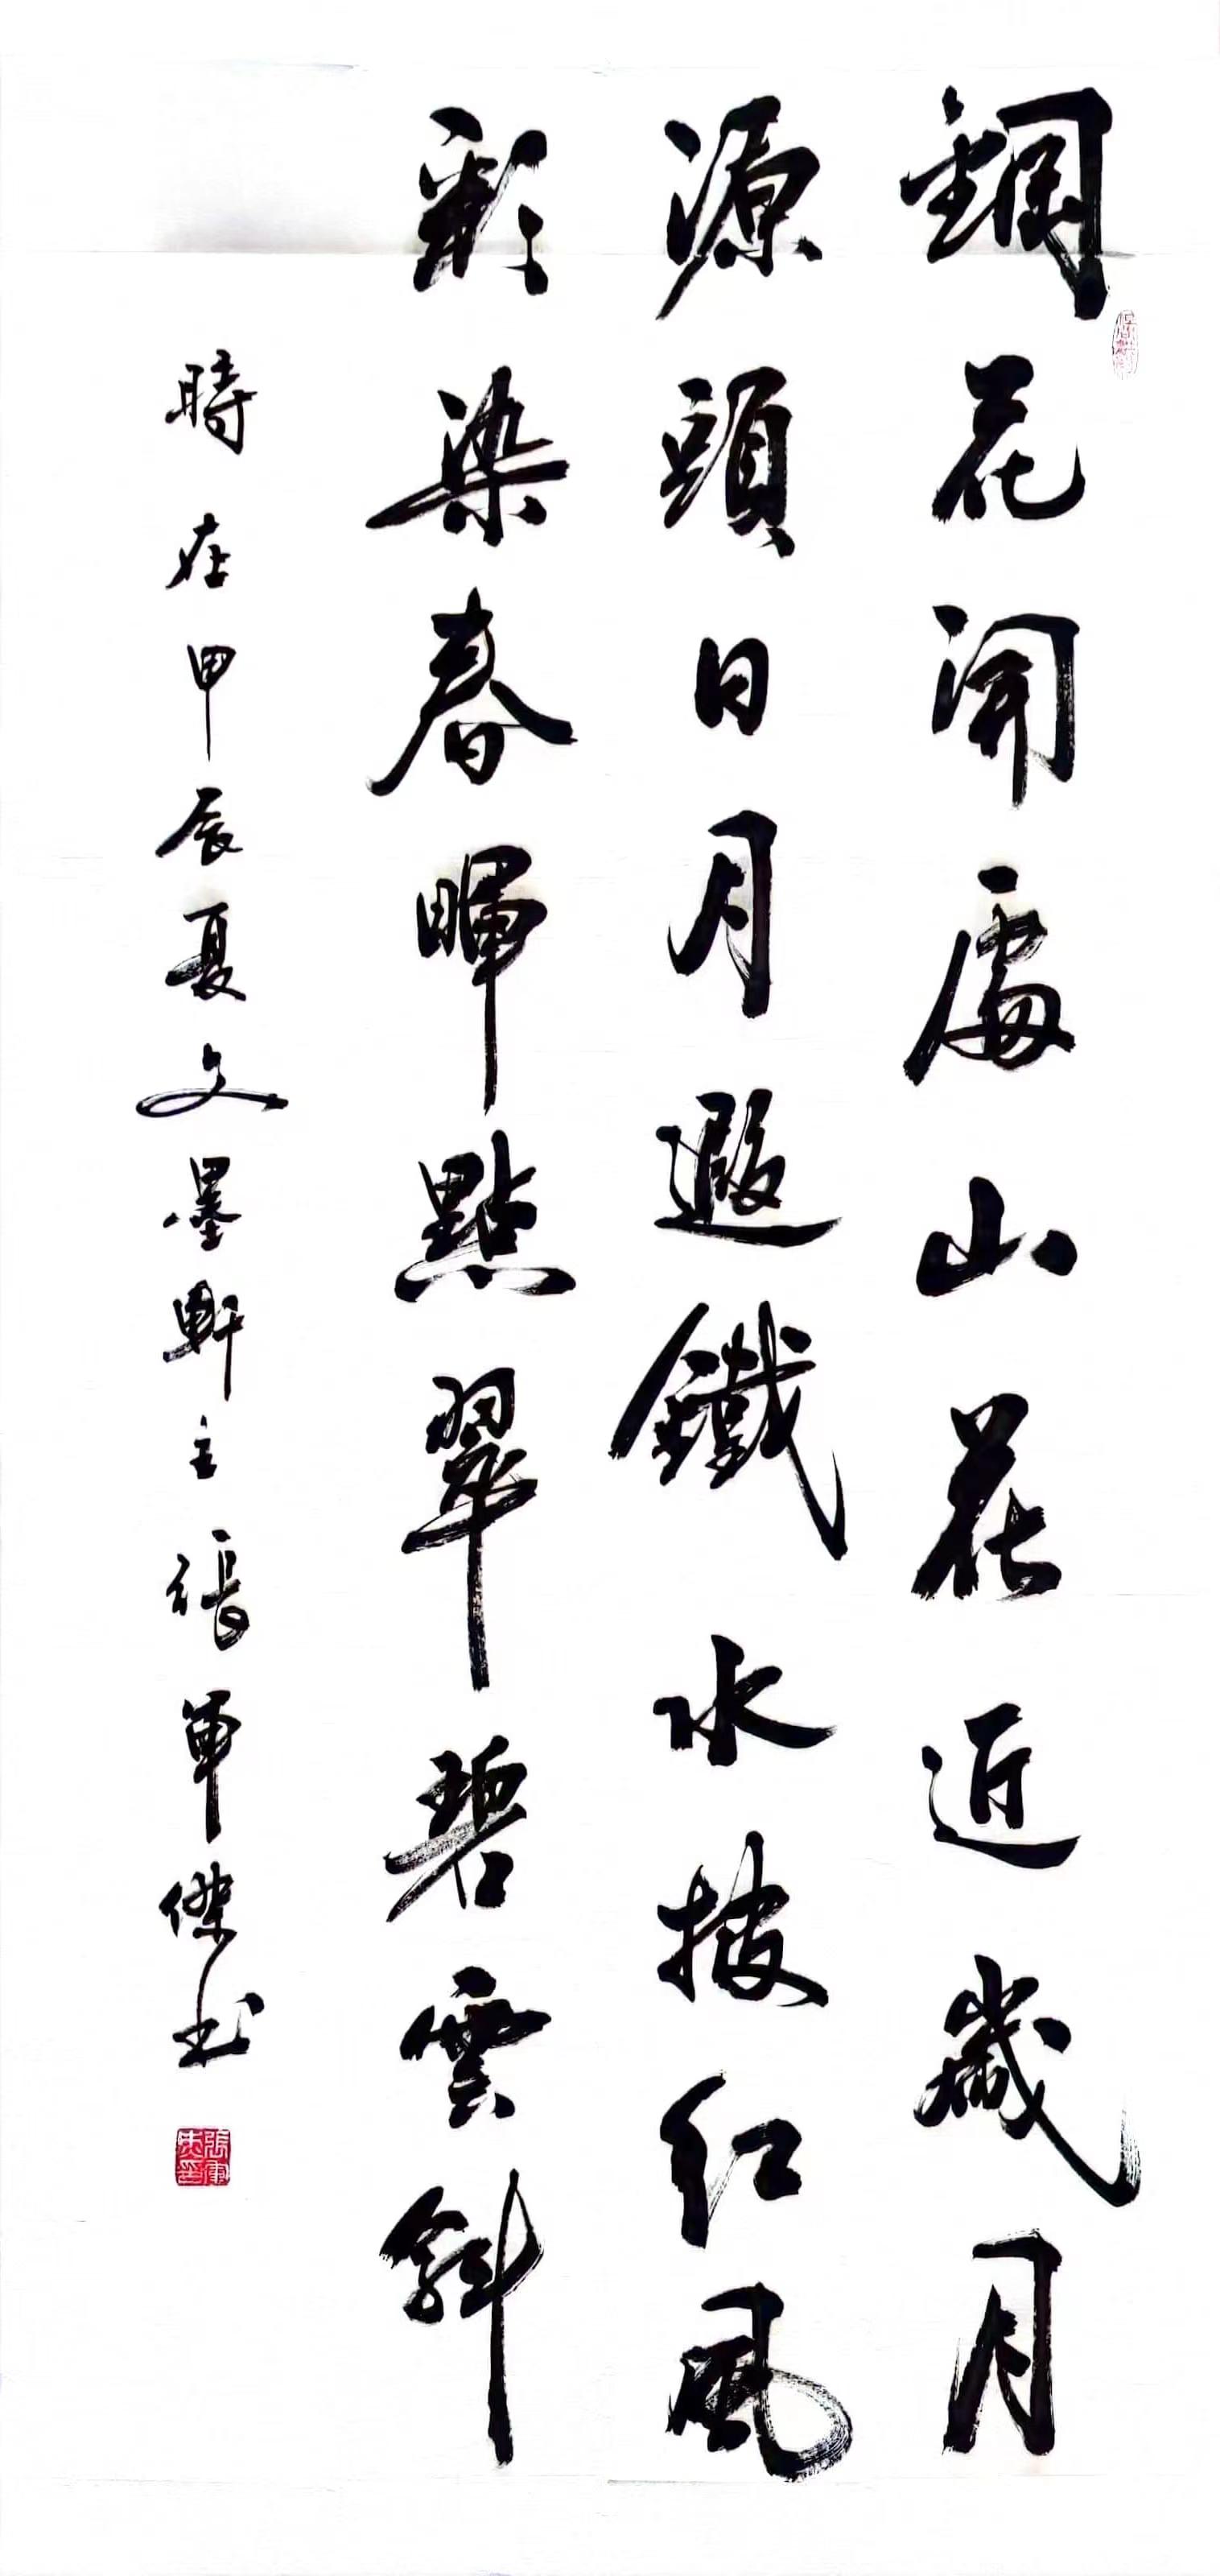 鋼花開處山花近歲月
源頭日月遐鐵水披紅風
彩染春暉點翠碧雲斜
時在甲辰夏文墨軒主張軍傑書
張軍杰印